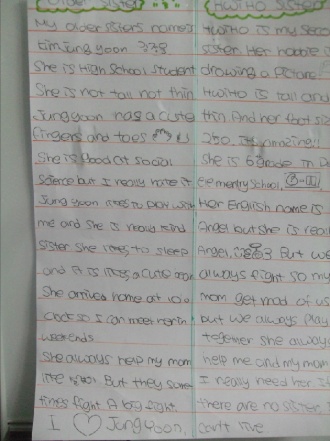 Older Sister
My older sister's name is
Kim Jung yoon 3-78
She is High School student
She is not tall not thin
Jungyoon has a cute
fingers and toes
She is good at social
Science but I really hate it.
Jung yoon likes to play with
me and she is really kind
sister. She likes to sleep
and it is likes a cute
She arrived home at 10 o
clock so I can meet her in
weekends
She always help my mom
like But they some
times fight A big fight.
I ♡ Jung yoon.
HwiHo Sister
HwiHo is my seco
sister. Her hobbie i
drawing a picture
HwiHo is tall and
thin And her foot siz
250. It's amazing!!
She is 6 grade in D
elementry School.
Her English name is
Angel but she is real
Angel. But we
always fight so my
mom get mad of us
but we always play
together she always
help me and my mom
I really need her. I
there are no sister, I
can't live